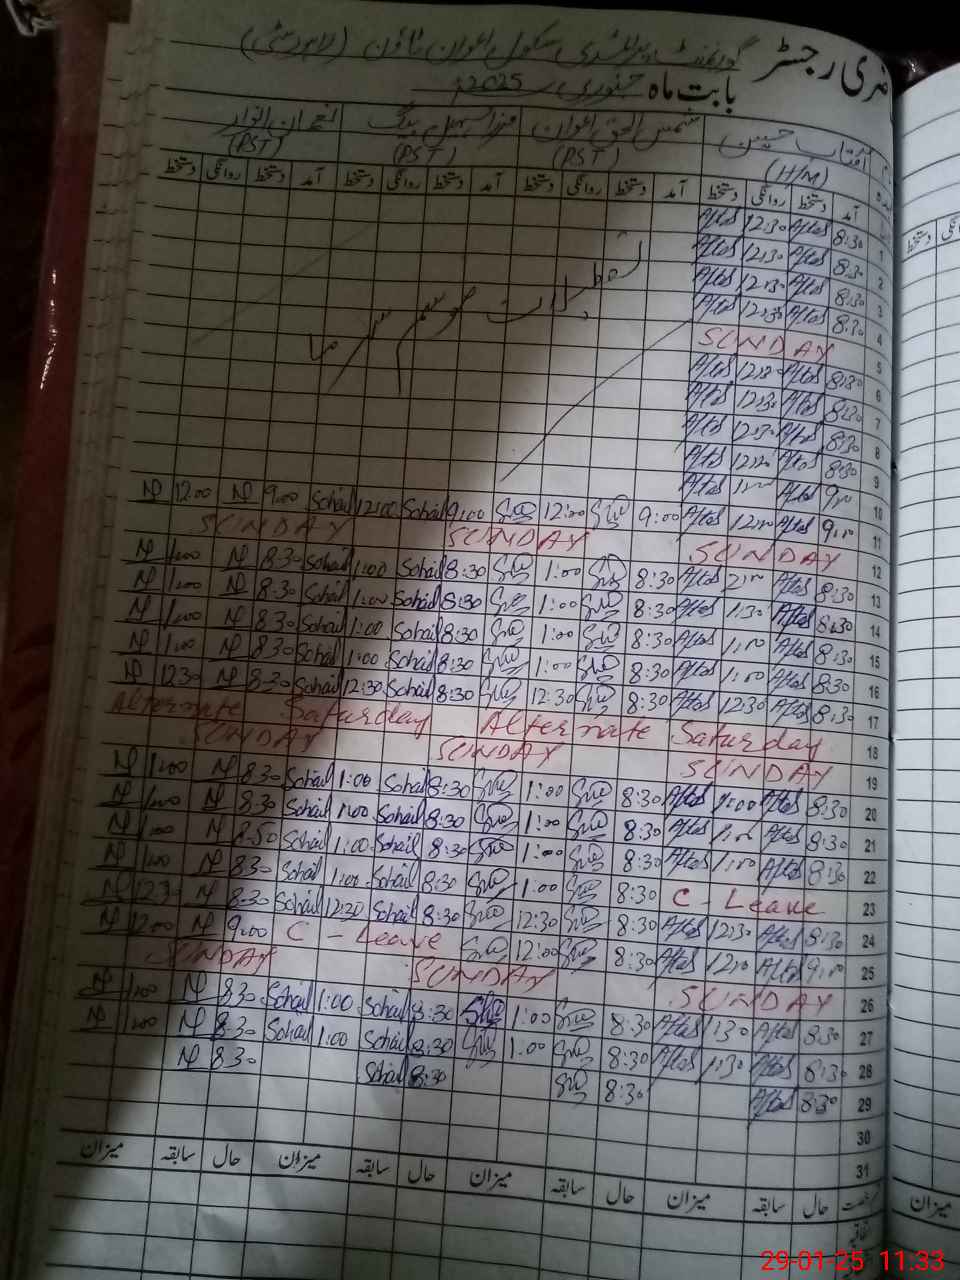 حاضری رجسٹر گورنمنٹ پرائمری سکول اعوان ٹاؤن (لاہور سٹی)
بابت ماہ جنوری 2025ء
آفتاب حسین شمس الحق اعوان مرزا سہیل بیگ نعمان انوار
(H/M) (PST) (PST) (PST)
آمد دستخط روانگی دستخط آمد دستخط روانگی دستخط آمد دستخط روانگی دستخط آمد دستخط روانگی دستخط
1 8:30 Aftab 12:30 Aftab
2 8:30 Aftab 12:30 Aftab
3 8:30 Aftab 12:30 Aftab
4 8:30 Aftab 12:30 Aftab
تعطیلات موسم سرما
5 SUNDAY
6 8:30 Aftab 12:30 Aftab
7 8:30 Aftab 12:30 Aftab
8 8:30 Aftab 12:30 Aftab
9 8:30 Aftab Aftab
10 9:00 Aftab Aftab
11 9:00 Aftab 12:00 Aftab 9:00 12:00 9:00 Sohail 12:00 Sohail 9:00 12:00
12 SUNDAY SUNDAY SUNDAY
13 8:30 Aftab Aftab 8:30 1:00 8:30 Sohail 1:00 Sohail 8:30 1:00
14 8:30 Aftab 1:30 Aftab 8:30 1:00 8:30 Sohail 1:00 Sohail 8:30 1:00
15 8:30 Aftab 1:00 Aftab 8:30 1:00 8:30 Sohail 1:00 Sohail 8:30 1:00
16 8:30 Aftab 1:00 Aftab 8:30 1:00 8:30 Sohail 1:00 Sohail 8:30 1:00
17 8:30 Aftab 12:30 Aftab 8:30 12:30 8:30 Sohail 12:30 Sohail 8:30 12:30
18 Alternate Saturday Alternate Saturday
19 SUNDAY SUNDAY SUNDAY
20 8:30 Aftab 1:00 Aftab 8:30 1:00 8:30 Sohail 1:00 Sohail 8:30 1:00
21 8:30 Aftab 1:00 Aftab 8:30 1:00 8:30 Sohail 1:00 Sohail 8:30 1:00
22 8:30 Aftab 1:00 Aftab 8:30 1:00 8:30 Sohail 1:00 Sohail 1:00
23 C - Leave 8:30 1:00 8:30 Sohail 1:00 Sohail 8:30 1:00
24 8:30 Aftab 12:30 Aftab 8:30 12:30 8:30 Sohail 12:30 Sohail 8:30 12:30
25 9:00 Aftab 12:00 Aftab 8:30 12:00 C - Leave 9:00 12:00
26 SUNDAY SUNDAY SUNDAY
27 8:30 Aftab 1:30 Aftab 8:30 1:00 8:30 Sohail 1:00 Sohail 8:30 1:00
28 8:30 Aftab 1:30 Aftab 8:30 1:00 8:30 Sohail 1:00 Sohail 8:30 1:00
29 8:30 Aftab 8:30 8:30 Sohail 8:30
30
31
رخصت حال سابقہ میزان حال سابقہ میزان حال سابقہ میزان حال سابقہ میزان
اتفاقیہ
روانگی دستخط
میزان
29-01-25 11:33